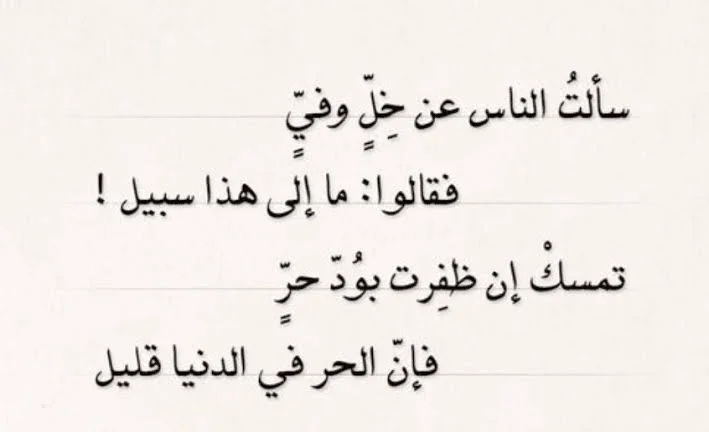 سألتُ الناس عن خِلٍّ وفيٍّ
فقالوا: ما إلى هذا سبيل !
تمسكْ إن ظفِرت بوُدّ حرٍّ
فإنّ الحر في الدنيا قليل